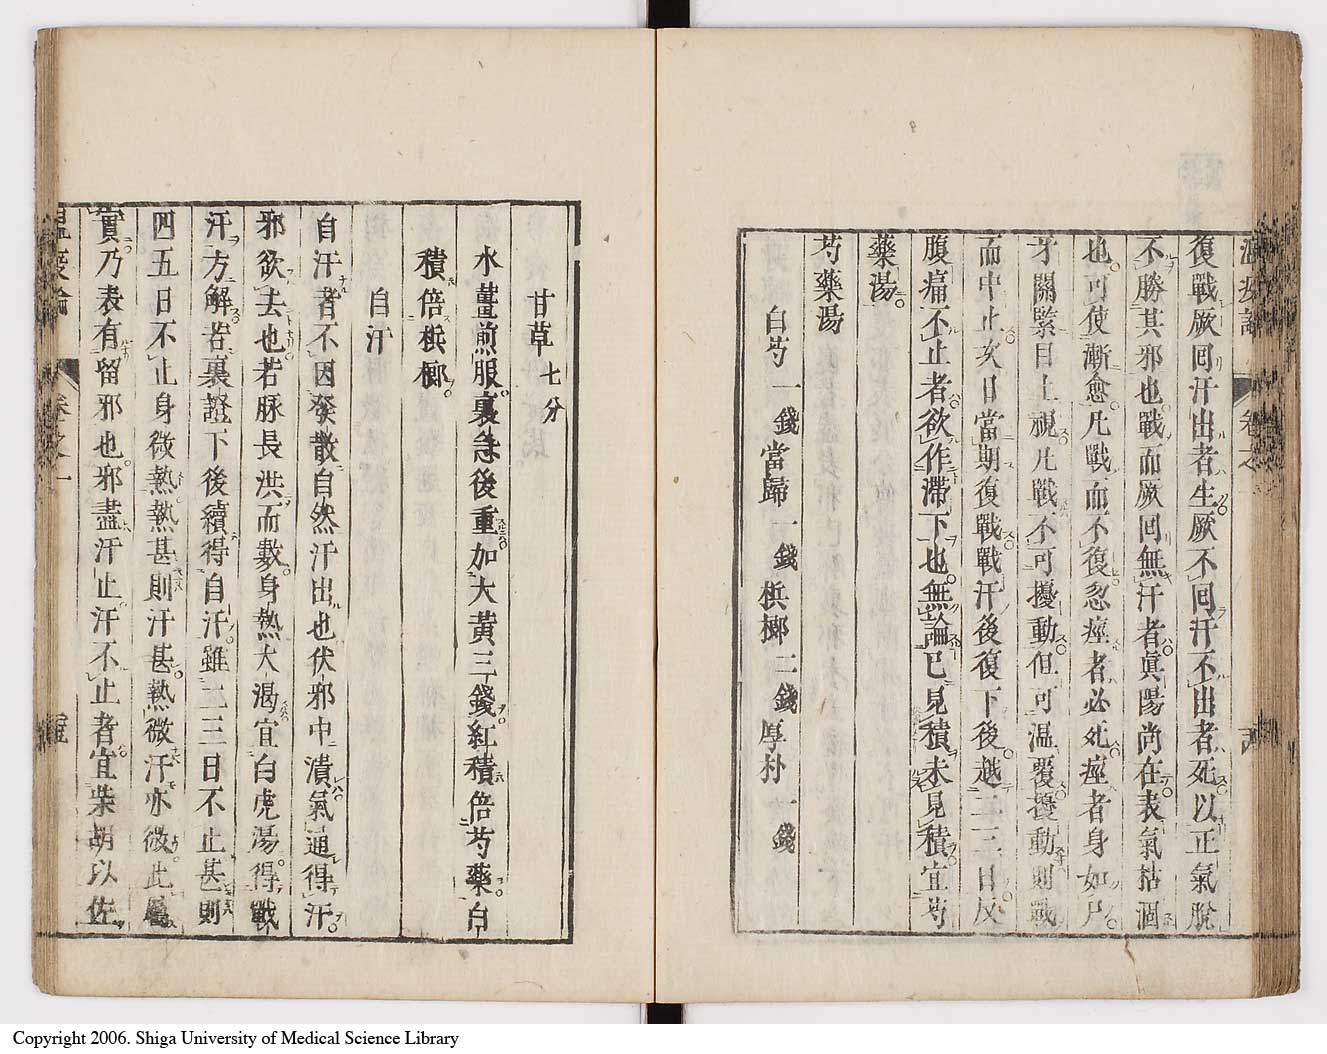 復戰厥回汗出者生厥不回汗不出者死以正氣脫
不勝其邪也戰而厥回無汗者真陽尚在表氣枯涸
也可使漸愈凡戰而不復忽痙者必死痙者身如尸
牙關緊目上視凡戰不可擾動但可溫覆擾動則戰
而中止次日當期復戰戰汗後復下後越二三日反
腹痛不止者欲作滯下也無論已見積未見積宜芍
藥湯
芍藥湯
白芍一錢當歸一錢梹榔二錢厚朴一錢
甘草七分
水薑煎服裏急後重加大黃三錢紅積倍芍藥白
積倍梹榔
自汗
自汗者不因發散自然汗出也伏邪中潰氣通得汗
邪欲去也若脉長洪而數身熱大渴宜白虎湯得戰
汗方解若裏證下後續得自汗雖二三日不止甚則
四五日不止身微熱熱甚則汗甚熱微汗亦微此屬
實乃表有留邪也邪盡汗止汗不止者宜柴胡以佐
Copyright 2006. Shiga University of Medical Science Library